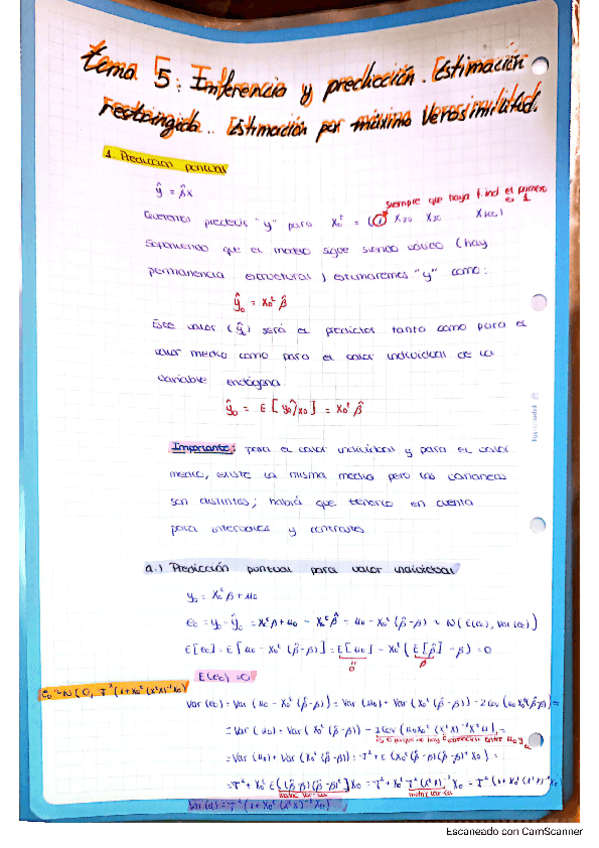 tema 5: Inferencia y predicción. Estimación
restringida.. Estimación por máximo Verosimilitud.
1. Predicción puntual
ŷ = β̂x
siempre que haya t.ind el primero
es 1
Queremos predecir "y" para X₀ᵗ = (1 X₂₀ X₃₀ Xₖ₀)
Suponiendo que el modelo sigue siendo válido (hay
permanencia estructural) estimaremos "y" como:
ŷ₀ = X₀ᵗ β̂
Este valor (ŷ₀) será el predictor tanto como para el
valor medio como para el valor individual de la
variable endógena.
ŷ₀ = E[y₀/x₀] = X₀ᵗ β̂
Importante: para el valor individual y para el valor
medio, existe la misma media pero las varianzas
son distintas; habrá que tenerlo en cuenta
para intervalos y contrastes
a.) Predicción puntual para valor individual
y₀ = X₀ᵗ β + u₀
e₀ = y₀ - ŷ₀ = X₀ᵗ β + u₀ - X₀ᵗ β̂ = u₀ - X₀ᵗ (β̂-β) ~ N(E(e₀), Var(e₀))
E[e₀] = E[u₀ - X₀ᵗ (β̂-β)] = E[u₀] - X₀ᵗ (E[β̂] - β) = 0
0 β
E(e₀) = 0
e₀ ~ N(0, σ² (1 + X₀ᵗ (XᵗX)⁻¹ X₀)
Var(e₀) = Var(u₀ - X₀ᵗ (β̂-β)) = Var(u₀) + Var(X₀ᵗ (β̂-β)) - 2 Cov(u₀ X₀ᵗ(β̂-β)) =
= Var(u₀) + Var(X₀ᵗ (β̂-β)) - 2 Cov(u₀ X₀ᵗ (XᵗX)⁻¹ Xᵗ u) =
= Var(u₀) + Var(X₀ᵗ (β̂-β)) = σ² + E(X₀ᵗ (β̂-β)(β̂-β)ᵗ X₀) =
= σ² + X₀ᵗ E[(β̂-β)(β̂-β)ᵗ] X₀ = σ² + X₀ᵗ σ² (XᵗX)⁻¹ X₀ = σ² (1 + X₀ᵗ (XᵗX)⁻¹ X₀)
matriz var-cov matriz var-cov
Var(e₀) = σ² (1 + X₀ᵗ (XᵗX)⁻¹ X₀)
Escaneado con CamScanner